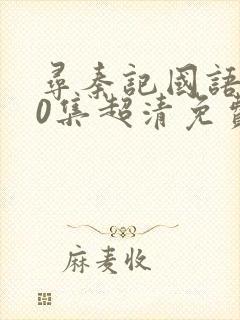 尋秦記國語
0集超清免費
麻麦收